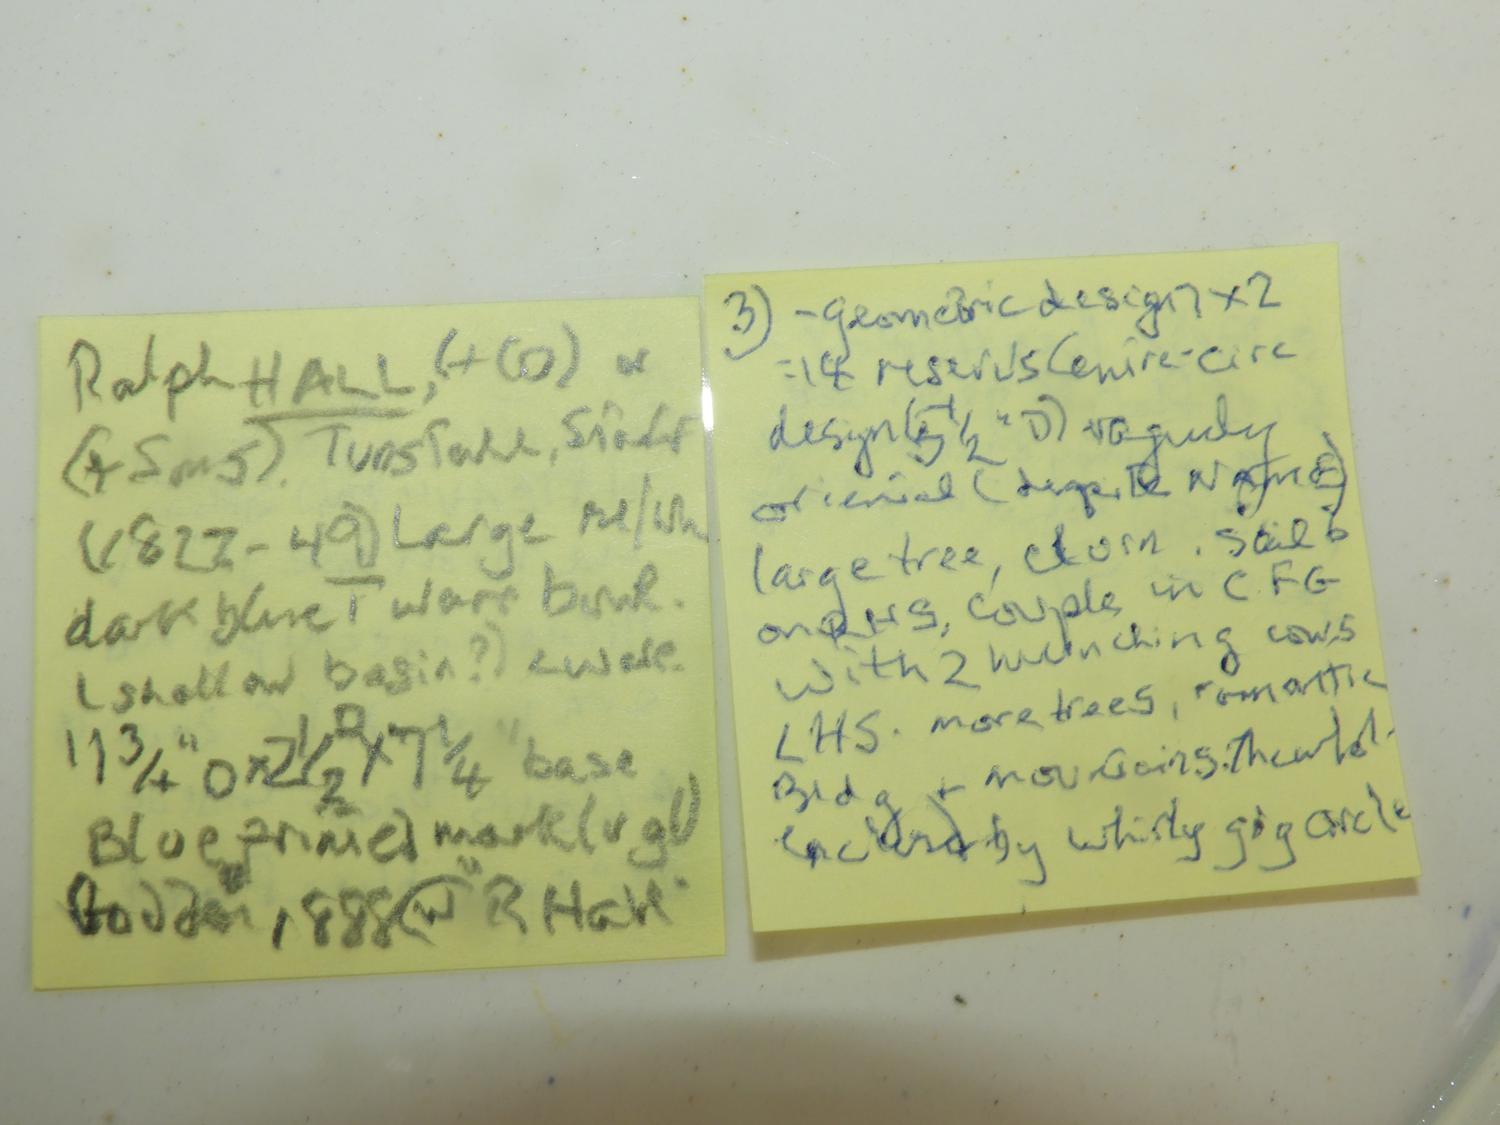 Ralph HALL, (+ CO) or
(+ Sons). Tunstall, Staff
(1822-49) Large Bl/Wh
dark blue T ware bowl.
(shallow basin?) ewure.
11 3/4" D x 2 1/2 D x 7 1/4" base
Blue printed mark (v gl)
Godden, 1888 (" R Hall"
3) - geometric design x 2
= 14 reserves Centre-circ
design (5 1/2 " D) vaguely
oriental (despite NAME)
large tree, churn, sailb
on RHS, couple in CFG
with 2 munching cows
LHS. more trees, romantic
Bldg + mountains. The whol
enclosed by whirly gig circle